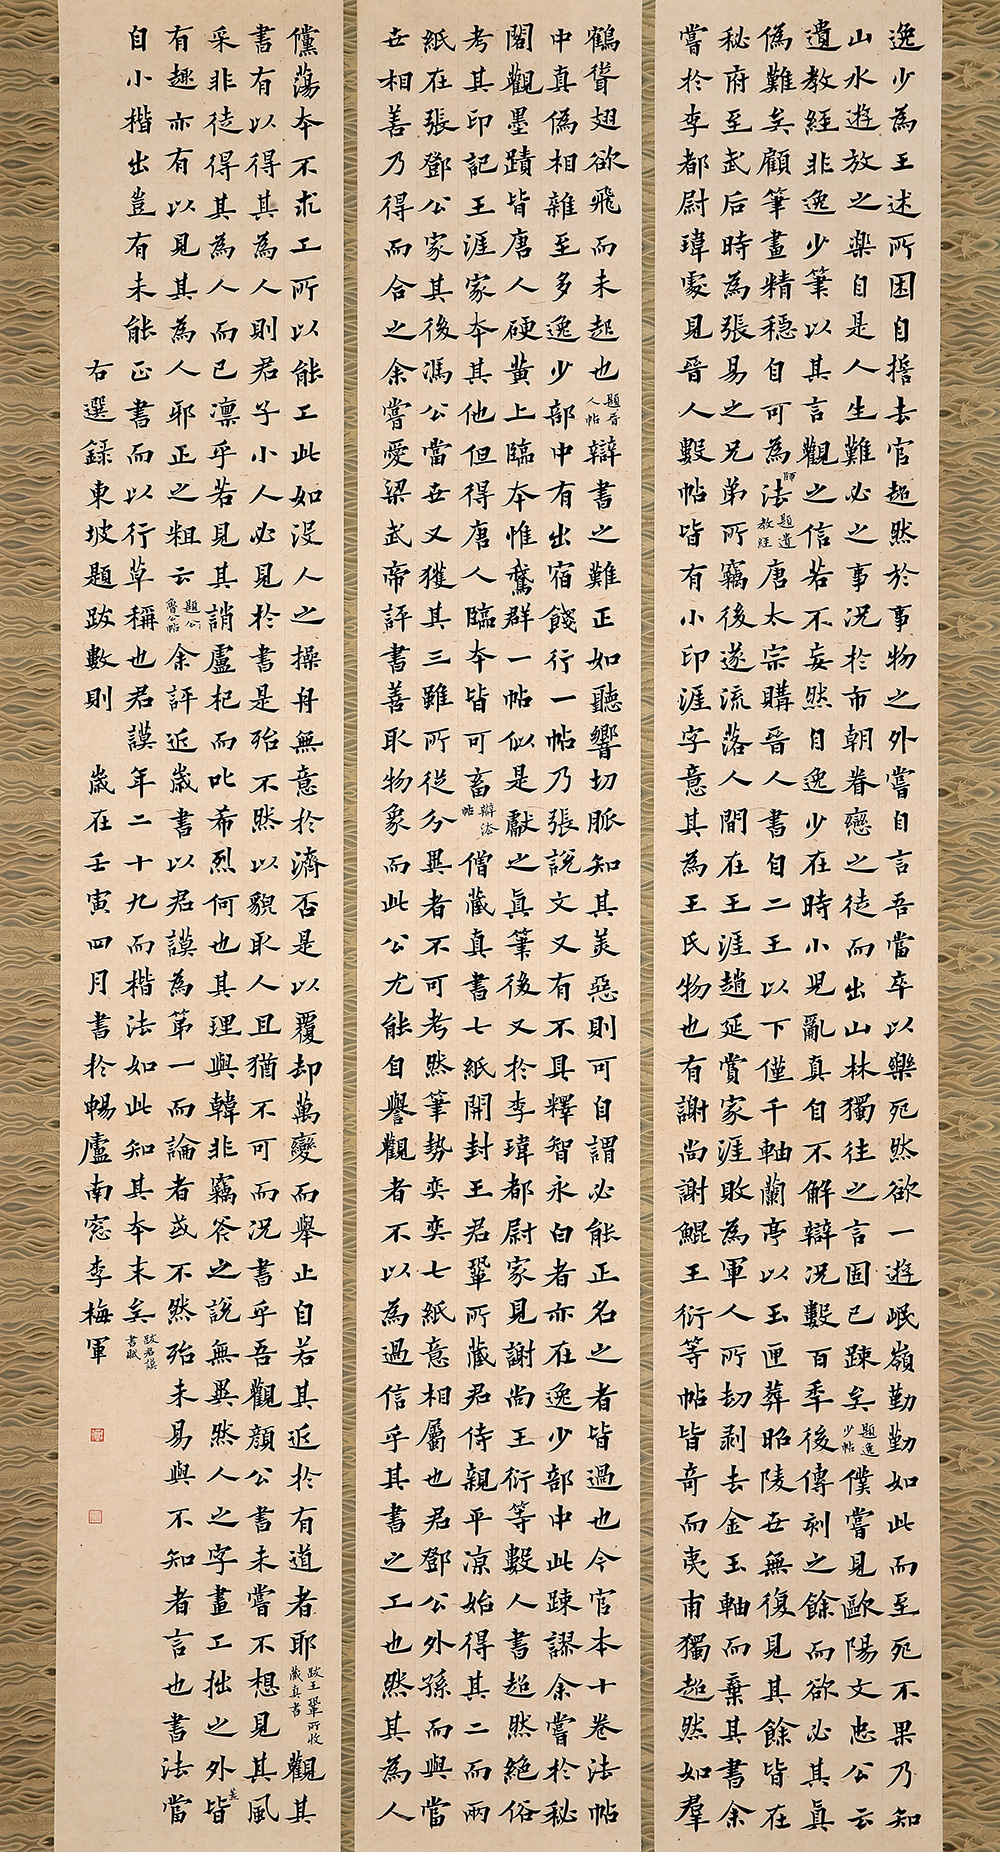 逸少為王述所困自誓去官超然於事物之外嘗自言吾當卒以樂死然欲一遊岷嶺勤勤如此而至死不果乃知
山水遊放之樂自是人生難必之事況於市朝眷戀之徒而出山林獨往之言固已疎矣題逸少帖僕嘗見歐陽文忠公云
遺教經非逸少筆以其言觀之信若不妄然自逸少在時小兒亂真自不解辯況數百年後傳刻之餘而欲必其真
偽難矣顧筆畫精穩自可為師法題遺教經唐太宗購晉人書自二王以下僅千軸蘭亭以玉匣葬昭陵世無復見其餘皆在
秘府至武后時為張易之兄弟所竊後遂流落人間在王涯趙延賞家涯敗為軍人所劫剥去金玉軸而棄其書余
嘗於李都尉瑋處見晉人數帖皆有小印涯字意其為王氏物也有謝尚謝鯤王衍等帖皆奇而夷甫獨超然如羣
鶴聳翅欲飛而未起也題晉人帖辯書之難正如聽響切脈知其美惡則可自謂必能正名之者皆過也今官本十卷法帖
中真偽相雜至多逸少部中有出宿餞行一帖乃張說文又有不具釋智永白者亦在逸少部中此疎謬余嘗於秘
閣觀墨蹟皆唐人硬黃上臨本惟鵞群一帖似是獻之真筆後又於李瑋都尉家見謝尚王衍等數人書超然絕俗
考其印記王涯家本其他但得唐人臨本皆可畜辯法帖僧藏真書七紙開封王君鞏所藏君侍親平涼始得其二而兩
紙在張鄧公家其後馮公當世又獲其三雖所從分異者不可考然筆勢奕奕七紙意相屬也君鄧公外孫而與當
世相善乃得而合之余嘗愛梁武帝評書善取物象而此公尤能自譽觀者不以為過信乎其書之工也然其為人
儻蕩本不求工所以能工此如沒人之操舟無意於濟否是以覆却萬變而舉止自若其近於有道者耶跋王鞏所收藏真書觀其
書有以得其為人則君子小人必見於書是殆不然以貌取人且猶不可而況書乎吾觀顏公書未嘗不想見其風
采非徒得其為人而已凛乎若見其誚盧杞而叱希烈何也其理與韓非竊斧之說無異然人之字畫工拙之外皆蓋
有趣亦有以見其為人耶正之粗云題魯公帖余評近歲書以君謨為第一而論者或不然殆未易與不知者言也書法當
自小楷出豈有未能正書而以行草稱也君謨年二十九而楷法如此知其本末矣跋君謨書賦
右選錄東坡題跋數則 歲在壬寅四月書於暢廬南窓李梅軍